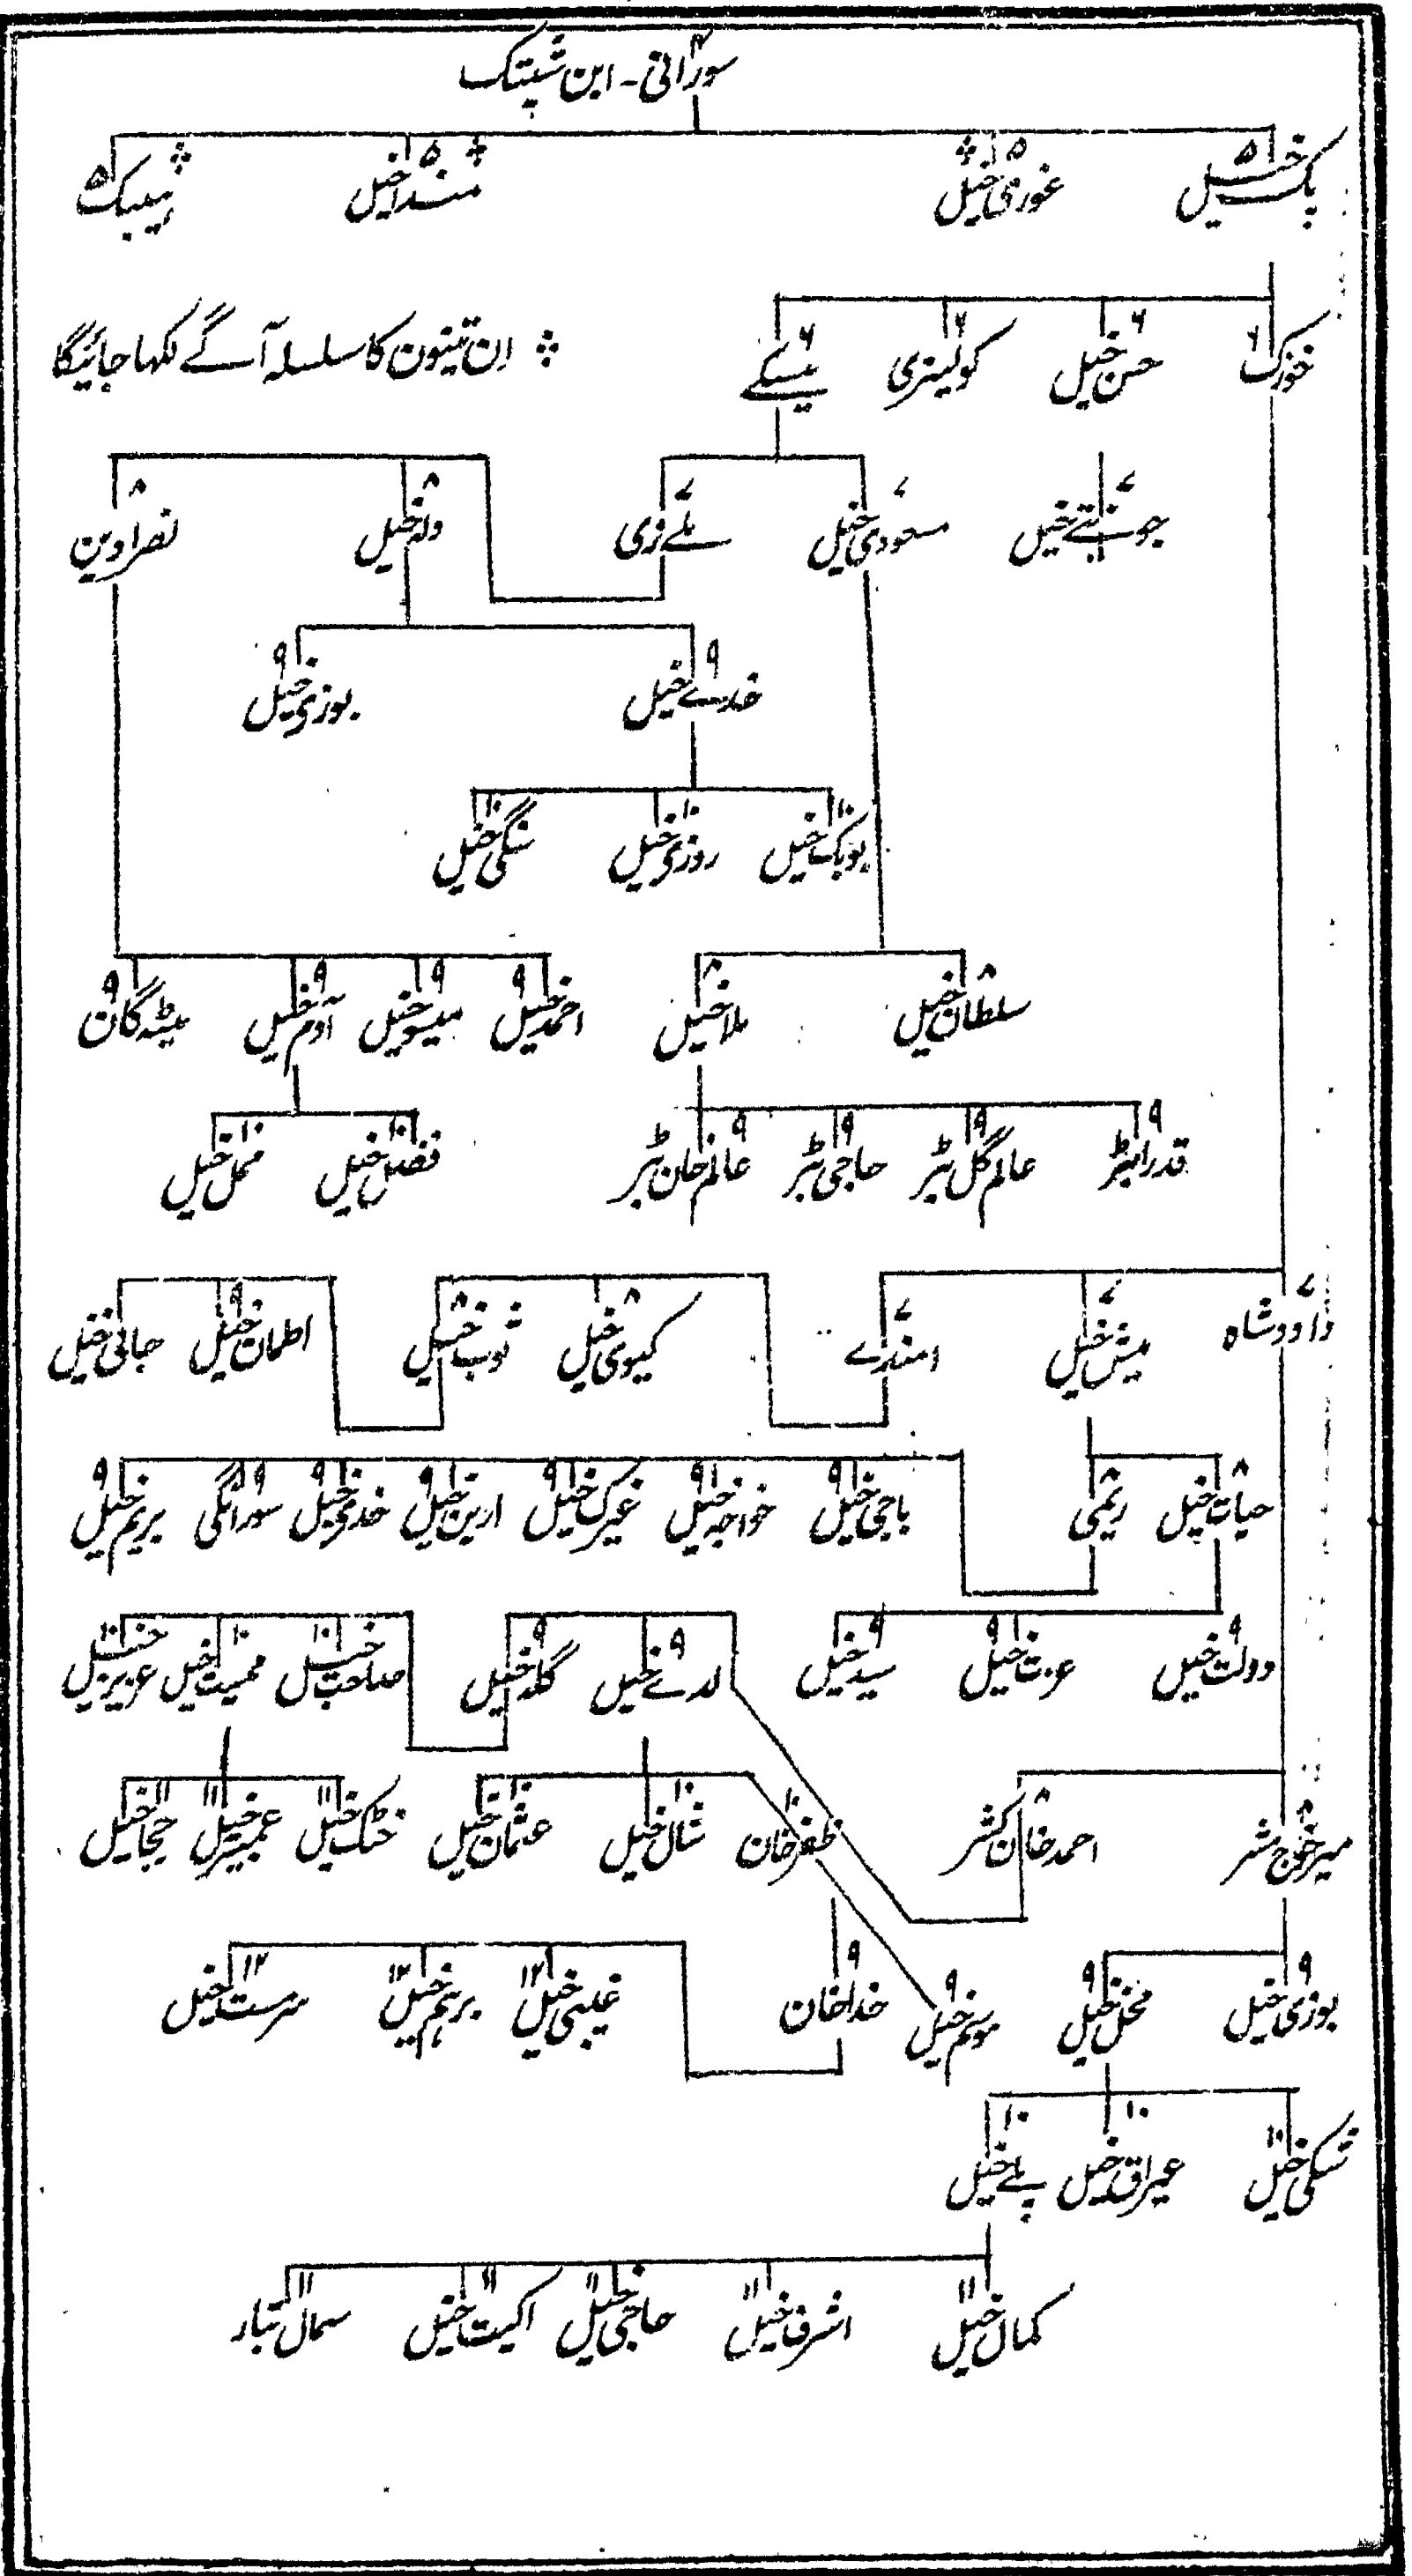 سورانی - ابن شیتک ۴
پک خیل ۵ غوری خیل ۵ منداخیل ۵ پیبک ۵
خوزک ۶ حسن خیل ۶ کولیزی ۶ یسکے ۶ ان تینون کا سلسلہ آگے لکھا جائیگا
مسعودی خیل ۷ ملے زی ۷ ولہ خیل ۸ نصرا وین ۸
خدرے خیل ۹ بوزی خیل ۹
بوبک خیل ۱۰ روزی خیل ۱۰ سنگی خیل ۱۰
سلطان خیل ۸ ملا خیل ۸ احمد خیل ۹ میسو خیل ۹ آدم خیل ۹ میٹہ گان ۹
قدرا ٹبر ۹ عالم گل ٹبر ۹ حاجی ٹبر ۹ عالم خان ٹبر ۹ فضل خیل ۱۰ ممل خیل ۱۰
داوود شاہ ۷ میش خیل ۷ امندے ۷ کیوی خیل ۸ ثوب خیل ۸ اطمان خیل ۹ جانی خیل ۹
حیات خیل ۸ ریمی ۸ باجی خیل ۹ خواجہ خیل ۹ غیرک خیل ۹ ارین خیل ۹ خدری خیل ۹ سورانگی ۹ بریم خیل ۹
دولت خیل ۹ عزت خیل ۹ سید خیل ۹ لدرے خیل ۹ گلہ خیل ۹ صاحب خیل ۱۰ ممیت خیل ۱۰ عزیز خیل ۱۰
میر خوج مشر ۸ احمد خان کشر ۸ ظفر خان ۱۰ شال خیل ۱۰ عثمان خیل ۱۰ خٹک خیل ۱۱ عمبیر خیل ۱۱ ججا خیل ۱۱
بوزی خیل ۹ مخل خیل ۹ موسم خیل ۹ خدا خان ۹ غیبی خیل ۱۲ برہم خیل ۱۲ سرمست خیل ۱۲
سکی خیل ۱۰ عیراق خیل ۱۰ پلے خیل ۱۰
کمال خیل ۱۱ اشرف خیل ۱۱ حاجی خیل ۱۱ اکیت خیل ۱۱ سمال تبار ۱۱